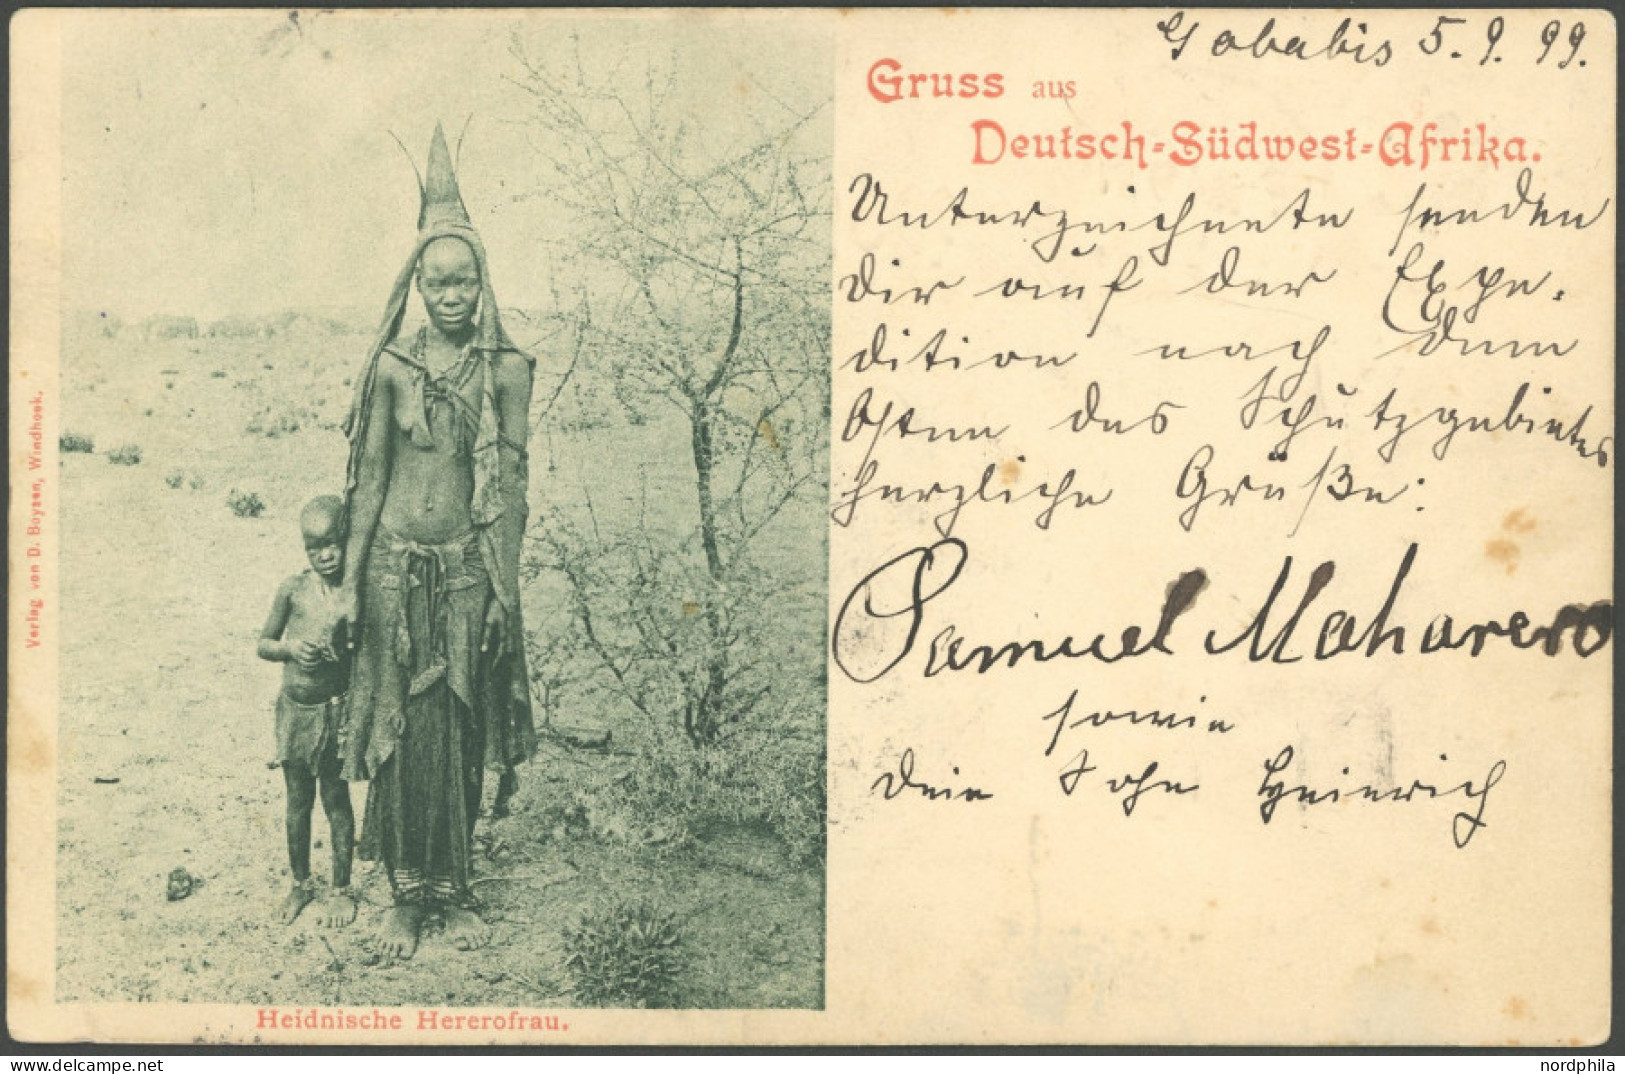 Gobabis 5. 9. 99.
Gruss aus
Deutsch-Südwest-Afrika.
Unterzeichnete senden
Dir auf der Expe-
dition nach dem
Osten des Schutzgebietes
herzliche Grüße:
Samuel Maharero
sowie
Dein Sohn Heinrich
Verlag von D. Boysen, Windhoek.
Heidnische Hererofrau.
nordphila